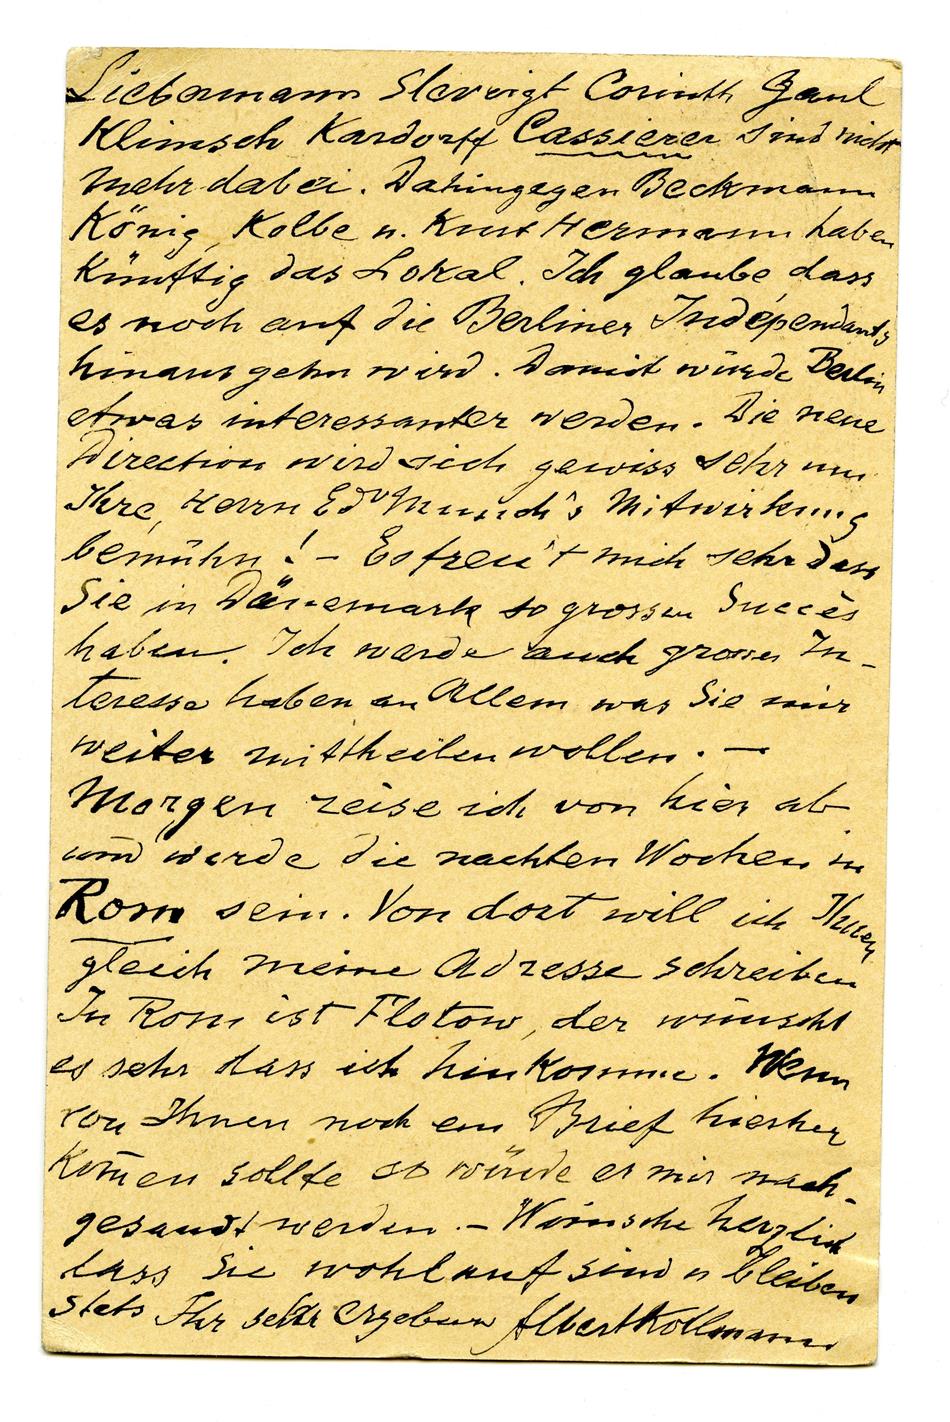 Liebermann Slevogt Corinth Gaul
Klimsch Kardorff Cassierer sind nicht
mehr dabei. Dahingegen Beckmann
König, Kolbe u. Kurt Hermann haben
künftig das Lokal. Ich glaube, dass
es noch auf die Berliner Indépendants
hinausgehn wird. Damit würde Berlin
etwas interessanter werden. Die neue
Direction wird sich gewiss sehr um
Ihre, Herrn Edv Munch's Mitwirkung
bemühn! – Es freut mich sehr dass
Sie in Dänemark so grossen Succès
haben. Ich werde auch grosses In-
teresse haben an Allem was Sie mir
weiter mittheilen wollen. –
Morgen reise ich von hier ab
und werde die nachten Wochen in
Rom sein. Von dort will ich Ihnen
gleich meine Adresse schreiben
In Rom ist Flotow, der wünscht
es sehr dass ich hin komme. Wenn
von Ihnen noch ein Brief hierher
kom̄en sollte so würde er mir nach-
gesandt werden. – Wünsche herzlich
dass Sie wohlauf sind u bleiben
stets Ihr sehr ergebener Albert Kollmann